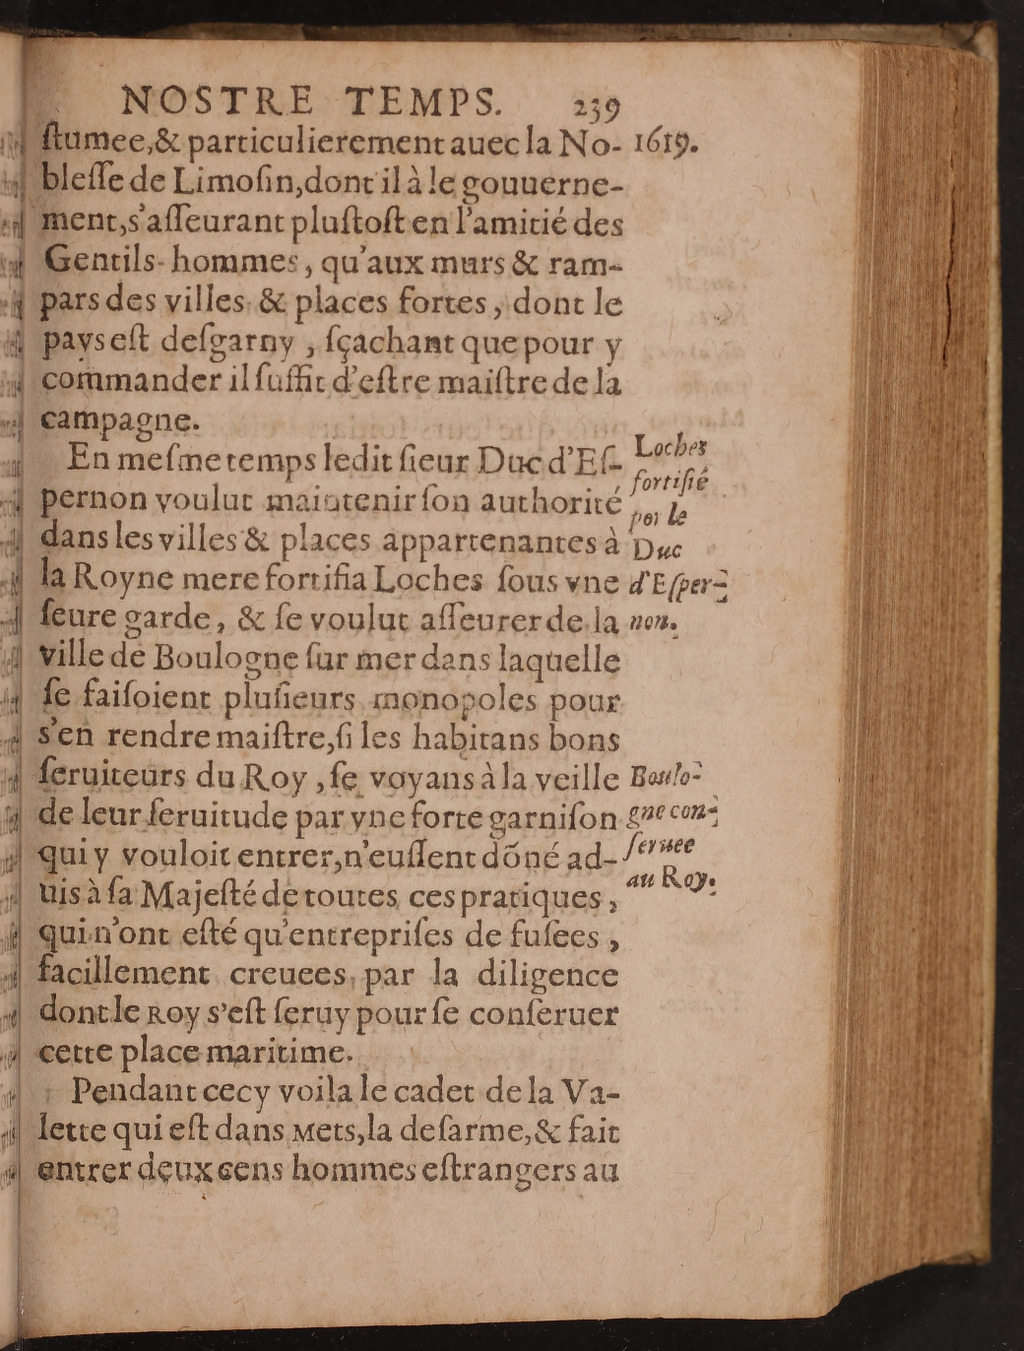 NOSTRE TEMPS. 239
ſtumee,& particulierement auec la No- 1619.
bleſſe de Limoſin,dont il à le gouuerne-
ment,s'aſſeurant pluſtoſt en l'amitié des
Gentils-hommes, qu'aux murs & ram-
pars des villes, & places fortes, dont le
pays eſt deſgarny, ſçachant que pour y
commander il ſuffit d'eſtre maiſtre de la
campagne.
En meſme temps ledit ſieur Duc d'Eſ-
pernon voulut maintenir ſon authorité
dans les villes & places appartenantes à
la Royne mere fortifia Loches ſous vne
ſeure garde, & ſe voulut aſſeurer de la
ville de Boulogne ſur mer dans laquelle
ſe faiſoient pluſieurs monopoles pour
s'en rendre maiſtre,ſi les habitans bons
ſeruiteurs du Roy, ſe voyans à la veille
de leur ſeruitude par vne forte garniſon
qui y vouloit entrer,n'euſſent dõné ad-
uis à ſa Majeſté de toutes ces pratiques,
qui n'ont eſté qu'entrepriſes de fuſees,
facillement creuees, par la diligence
dont le Roy s'eſt ſeruy pour ſe conſeruer
cette place maritime.
Pendant cecy voila le cadet de la Va-
lette qui eſt dans Mets,la deſarme,& fait
entrer deux cens hommes eſtrangers au
Loches
fortifié
par le
Duc
d'Eſper-
non.
Boulo-
gne con-
ſeruee
au Roy.